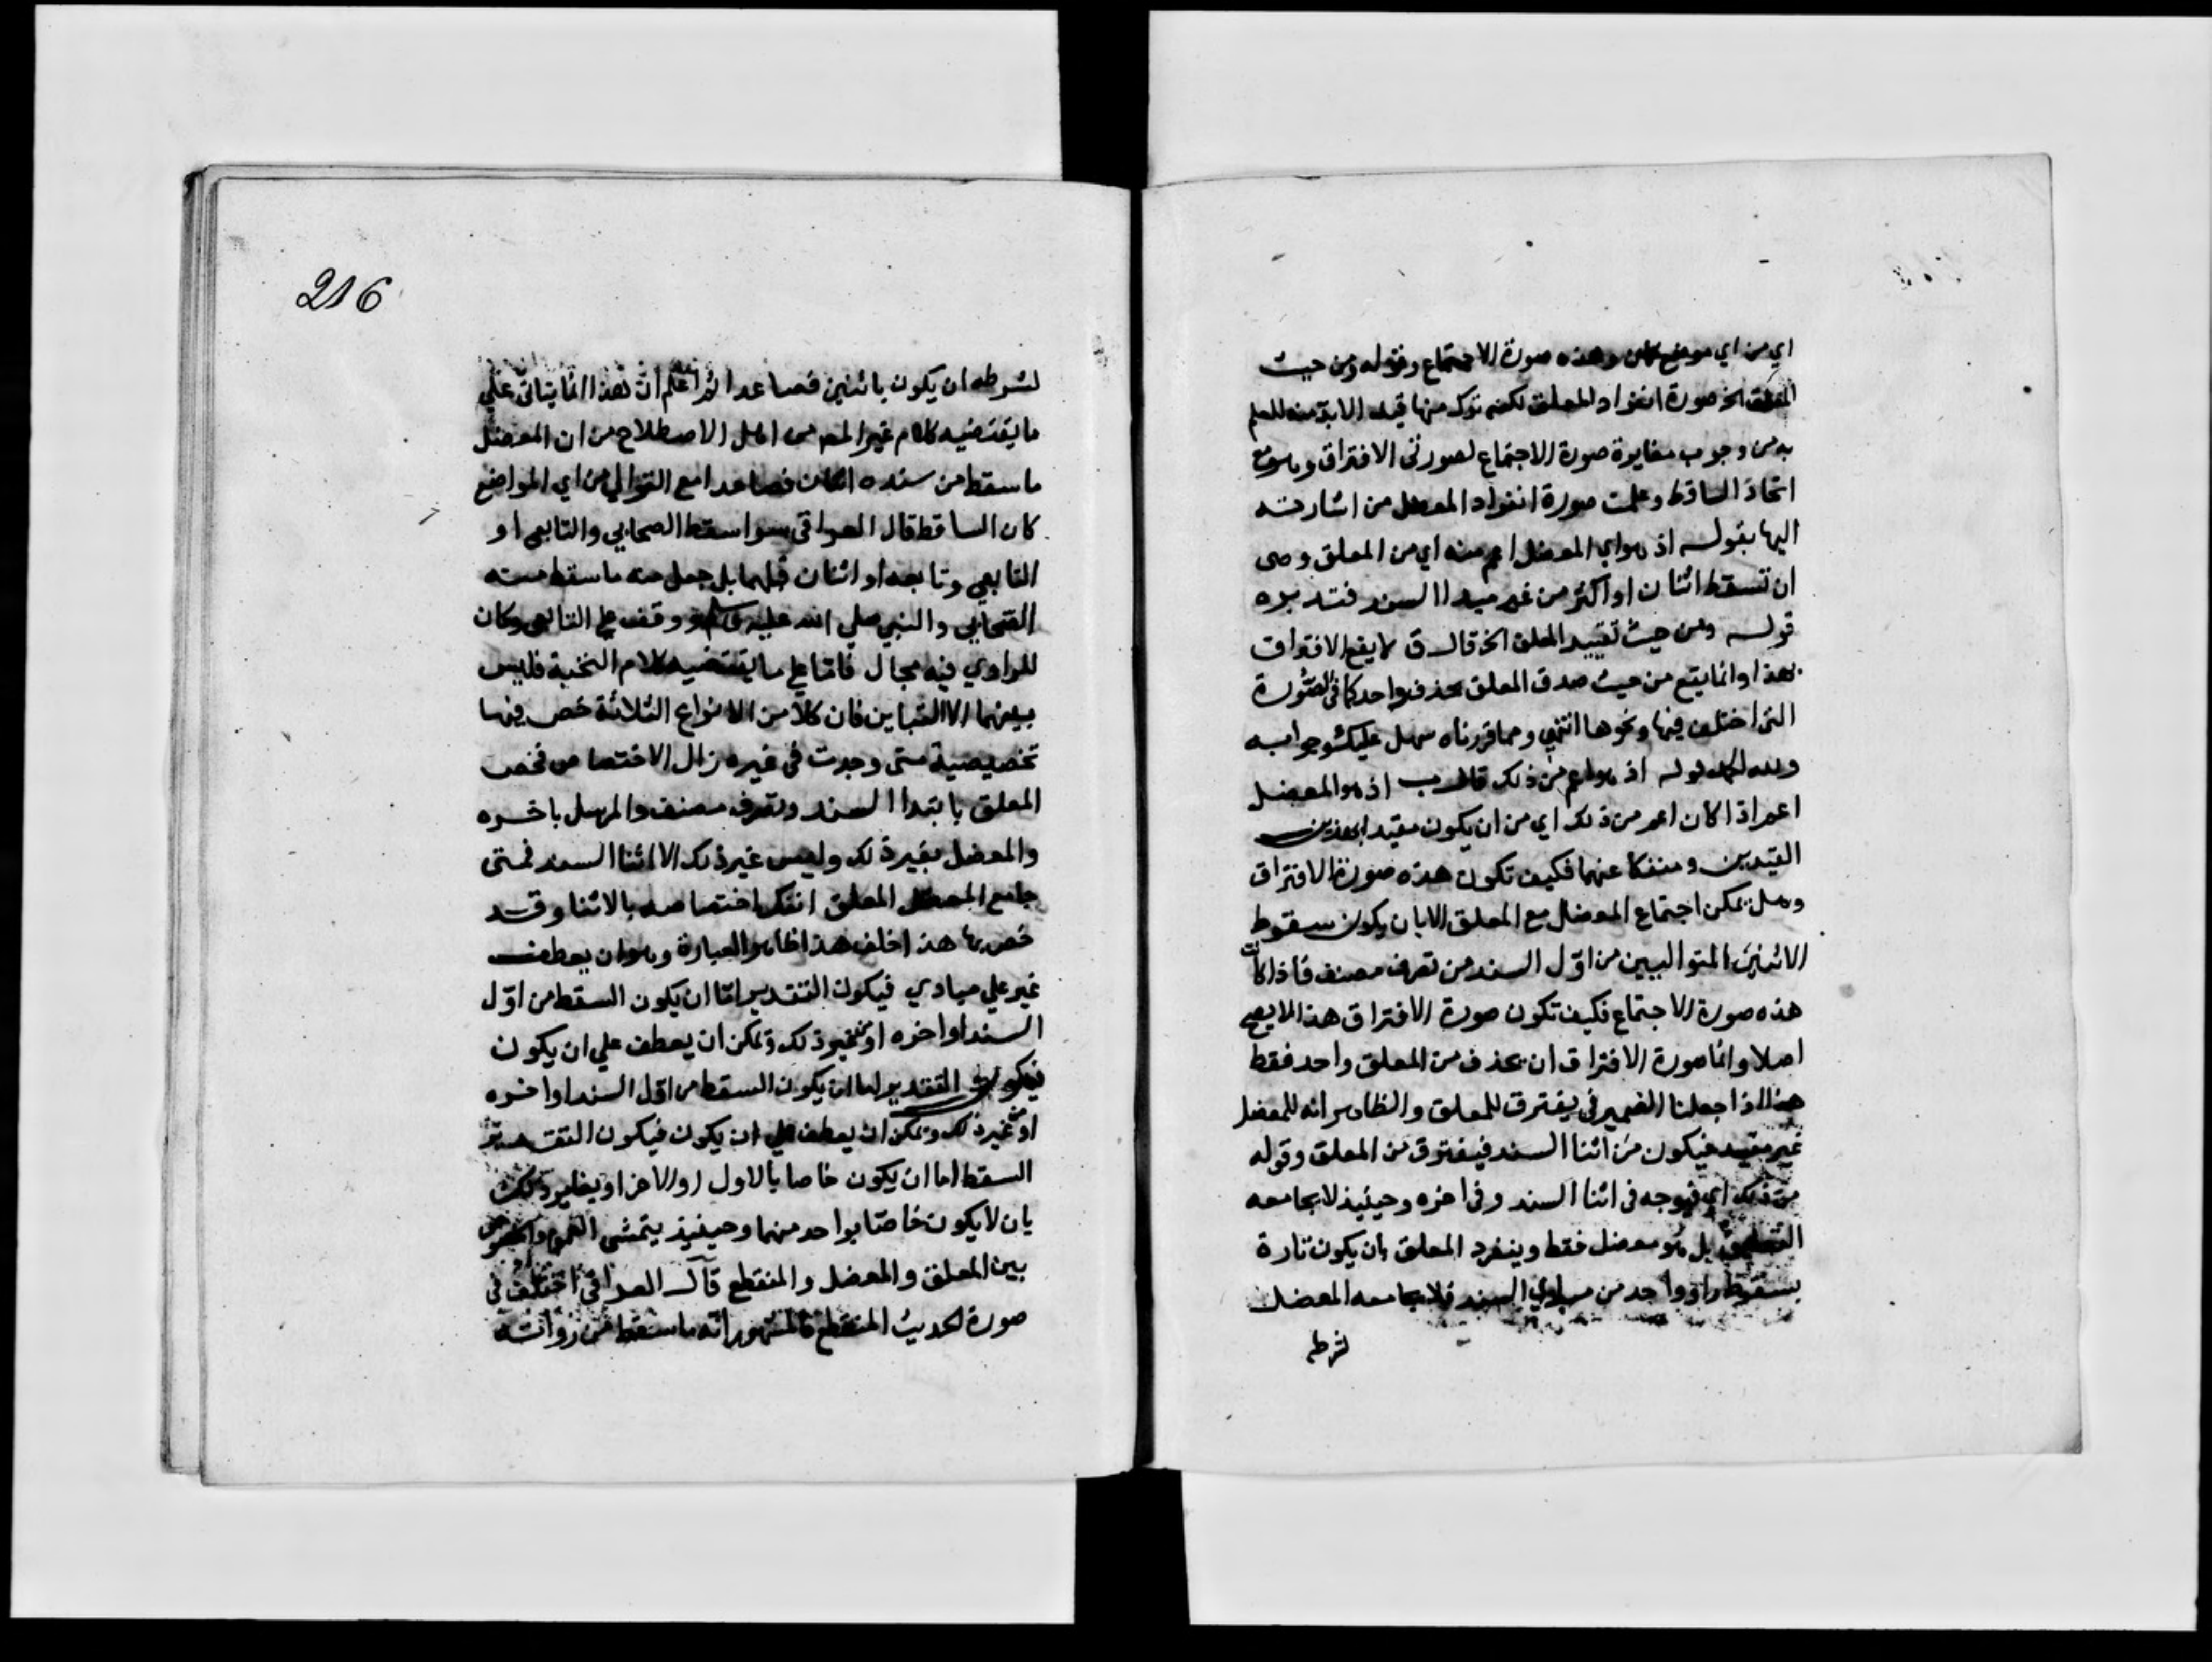 اي من اي موضع كان وهذه صورة الاجتماع وقوله ومن حيث
الخ صورة انفراد المعلق لكنه ترك منها قيد الابد منه للعلم
به من وجوب مغايرة صورة الاجتماع لصورتى الافتراق وهو
اتحاد الساقط وعلمت صورة انفراد المعضل من اشارته
اليها بقوله اذ هو اي المعضل اعم منه اي من المعلق وهى
ان تسقط اثنان او اكثر من غير مبدا السند فتدبره
قوله ومن حيث تقييد المعلق الخ قال ق لا يقع الافتراق
بهذا وانما يقع من حيث صدق المعلق بحذف واحد كما في الصورة
التى اختلف فيها ونحوها انتهي ومما قررناه سهل عليك جوابه
ولله الحمد قوله اذ هو اعم من ذلك قال ب اذ هو المعضل
اعم اذا كان اعم من ذلك اي من ان يكون مقيدا بهذين
القيدين ومنفكا عنهما فكيف تكون هذه صورة الافتراق
وهل يمكن اجتماع المعضل مع المعلق الا بان يكون سقوط
الاثنين المتواليين من اوّل السند من تصرف مصنف فاذا كانت
هذه صورة الاجتماع فكيف تكون صورة الافتراق هذا لا يصح
اصلا وانما صورة الافتراق ان يحذف من المعلق واحد فقط
هذا اذا جعلنا الضمير في يفترق للمعلق والظاهر انه للمعضل
غير مقيد فيكون من اثنا السند فيفترق من المعلق وقوله
من ذلك اي فيوجه في اثنا السند وفي اخره وحينيذ لا يجامعه
التعليق بل هو معضل فقط وينفرد المعلق بان يكون تارة
بسقوط راو واحد من مبادي السند فلا يجامعه المعضل
لشرطه
216
لشرطه ان يكون باثنين فصاعدا ثم اعلم ان هذا انما يتاتى علي
ما يقتضيه كلام غير المص من اهل الاصطلاح من ان المعضل
ما سقط من سنده اثنان فصاعدا مع التوالي من اي المواضع
كان الساقط قال العراقى سوا سقط الصحابي والتابعى او
التابعي وتابعه او اثنان قبلهما بل جعل منه ما سقط منه
الصحابي والنبي صلي الله عليه وسلم ووقف على التابعى وكان
للراوي فيه مجال فاما على ما يقتضيه كلام النخبة فليس
بينهما الا التباين فان كلا من الانواع الثلاثة خص فيها
تخصيصية متى وجدت في غيره زال الاختصاص فخص
المعلق بابتدا السند وتصرف مصنف والمرسل باخره
والمعضل بغير ذلك وليس غير ذلك الا اثنا السند فمتى
جامع المعضل المعلق انفك اختصاصه بالاثنا وقد
خص بها هذا خلف هذا ظاهر العبارة وهو ان يعطف
غير علي مبادي فيكون التقدير امّا ان يكون السقط من اوّل
السند او اخره او غير ذلك ويمكن ان يعطف علي ان يكون
فيكون التقدير اما ان يكون السقط من اوّل السند او اخره
او غير ذلك ويمكن ان يعطف علي ان يكون فيكون التقدير
السقط اما ان يكون خاصا بالاول او الاخر او يغاير ذلك
بان لا يكون خاصّا بواحد منهما وحينيذ يتمشى العموم
بين المعلق والمعضل والمنقطع قال العراقي اختلف في
صورة الحديث المنقطع فالمشهور انّه ما سقط من رواته